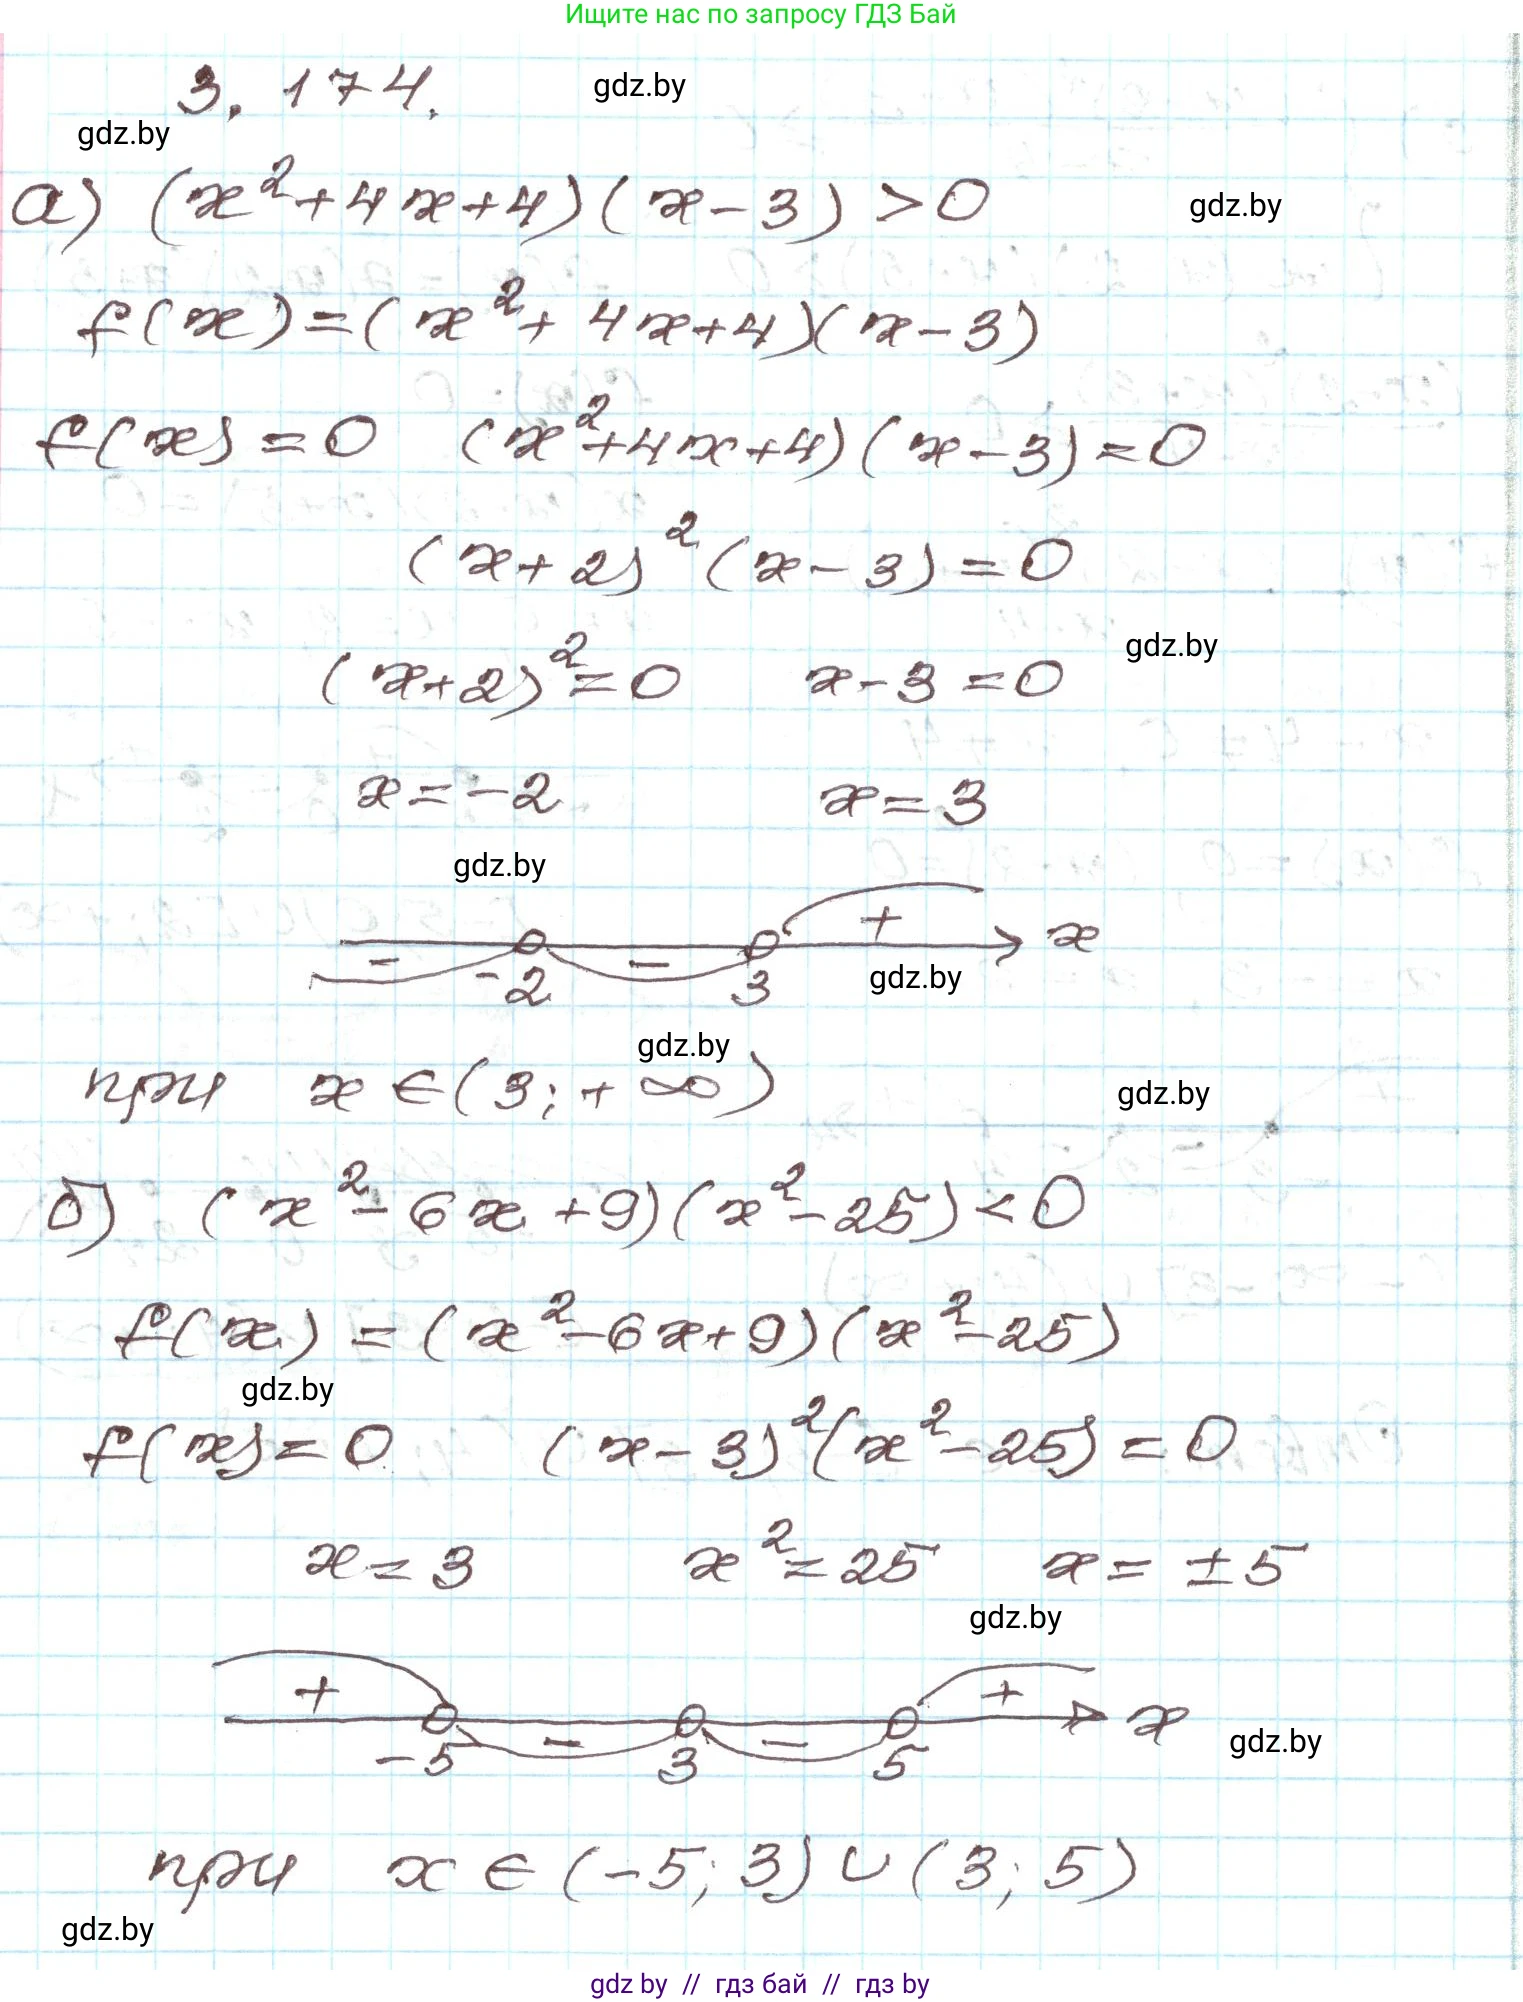 Ищите нас по запросу ГДЗ Бай
3.174.
gdz.by
gdz.by
а) (x²+4x+4)(x-3)>0
gdz.by
f(x)=(x²+4x+4)(x-3)
f(x)=0 (x²+4x+4)(x-3)=0
(x+2)²(x-3)=0
gdz.by
(x+2)²=0 x-3=0
x=-2 x=3
gdz.by
- - + x
-2 3 gdz.by
gdz.by
при x∈(3;+∞) gdz.by
б) (x²-6x+9)(x²-25)<0
f(x)=(x²-6x+9)(x²-25)
gdz.by
f(x)=0 (x-3)²(x²-25)=0
x=3 x²=25 x=±5
gdz.by
+ - - + x
-5 3 5 gdz.by
при x∈(-5;3)∪(3;5)
gdz.by
gdz by // гдз бай // гдз by